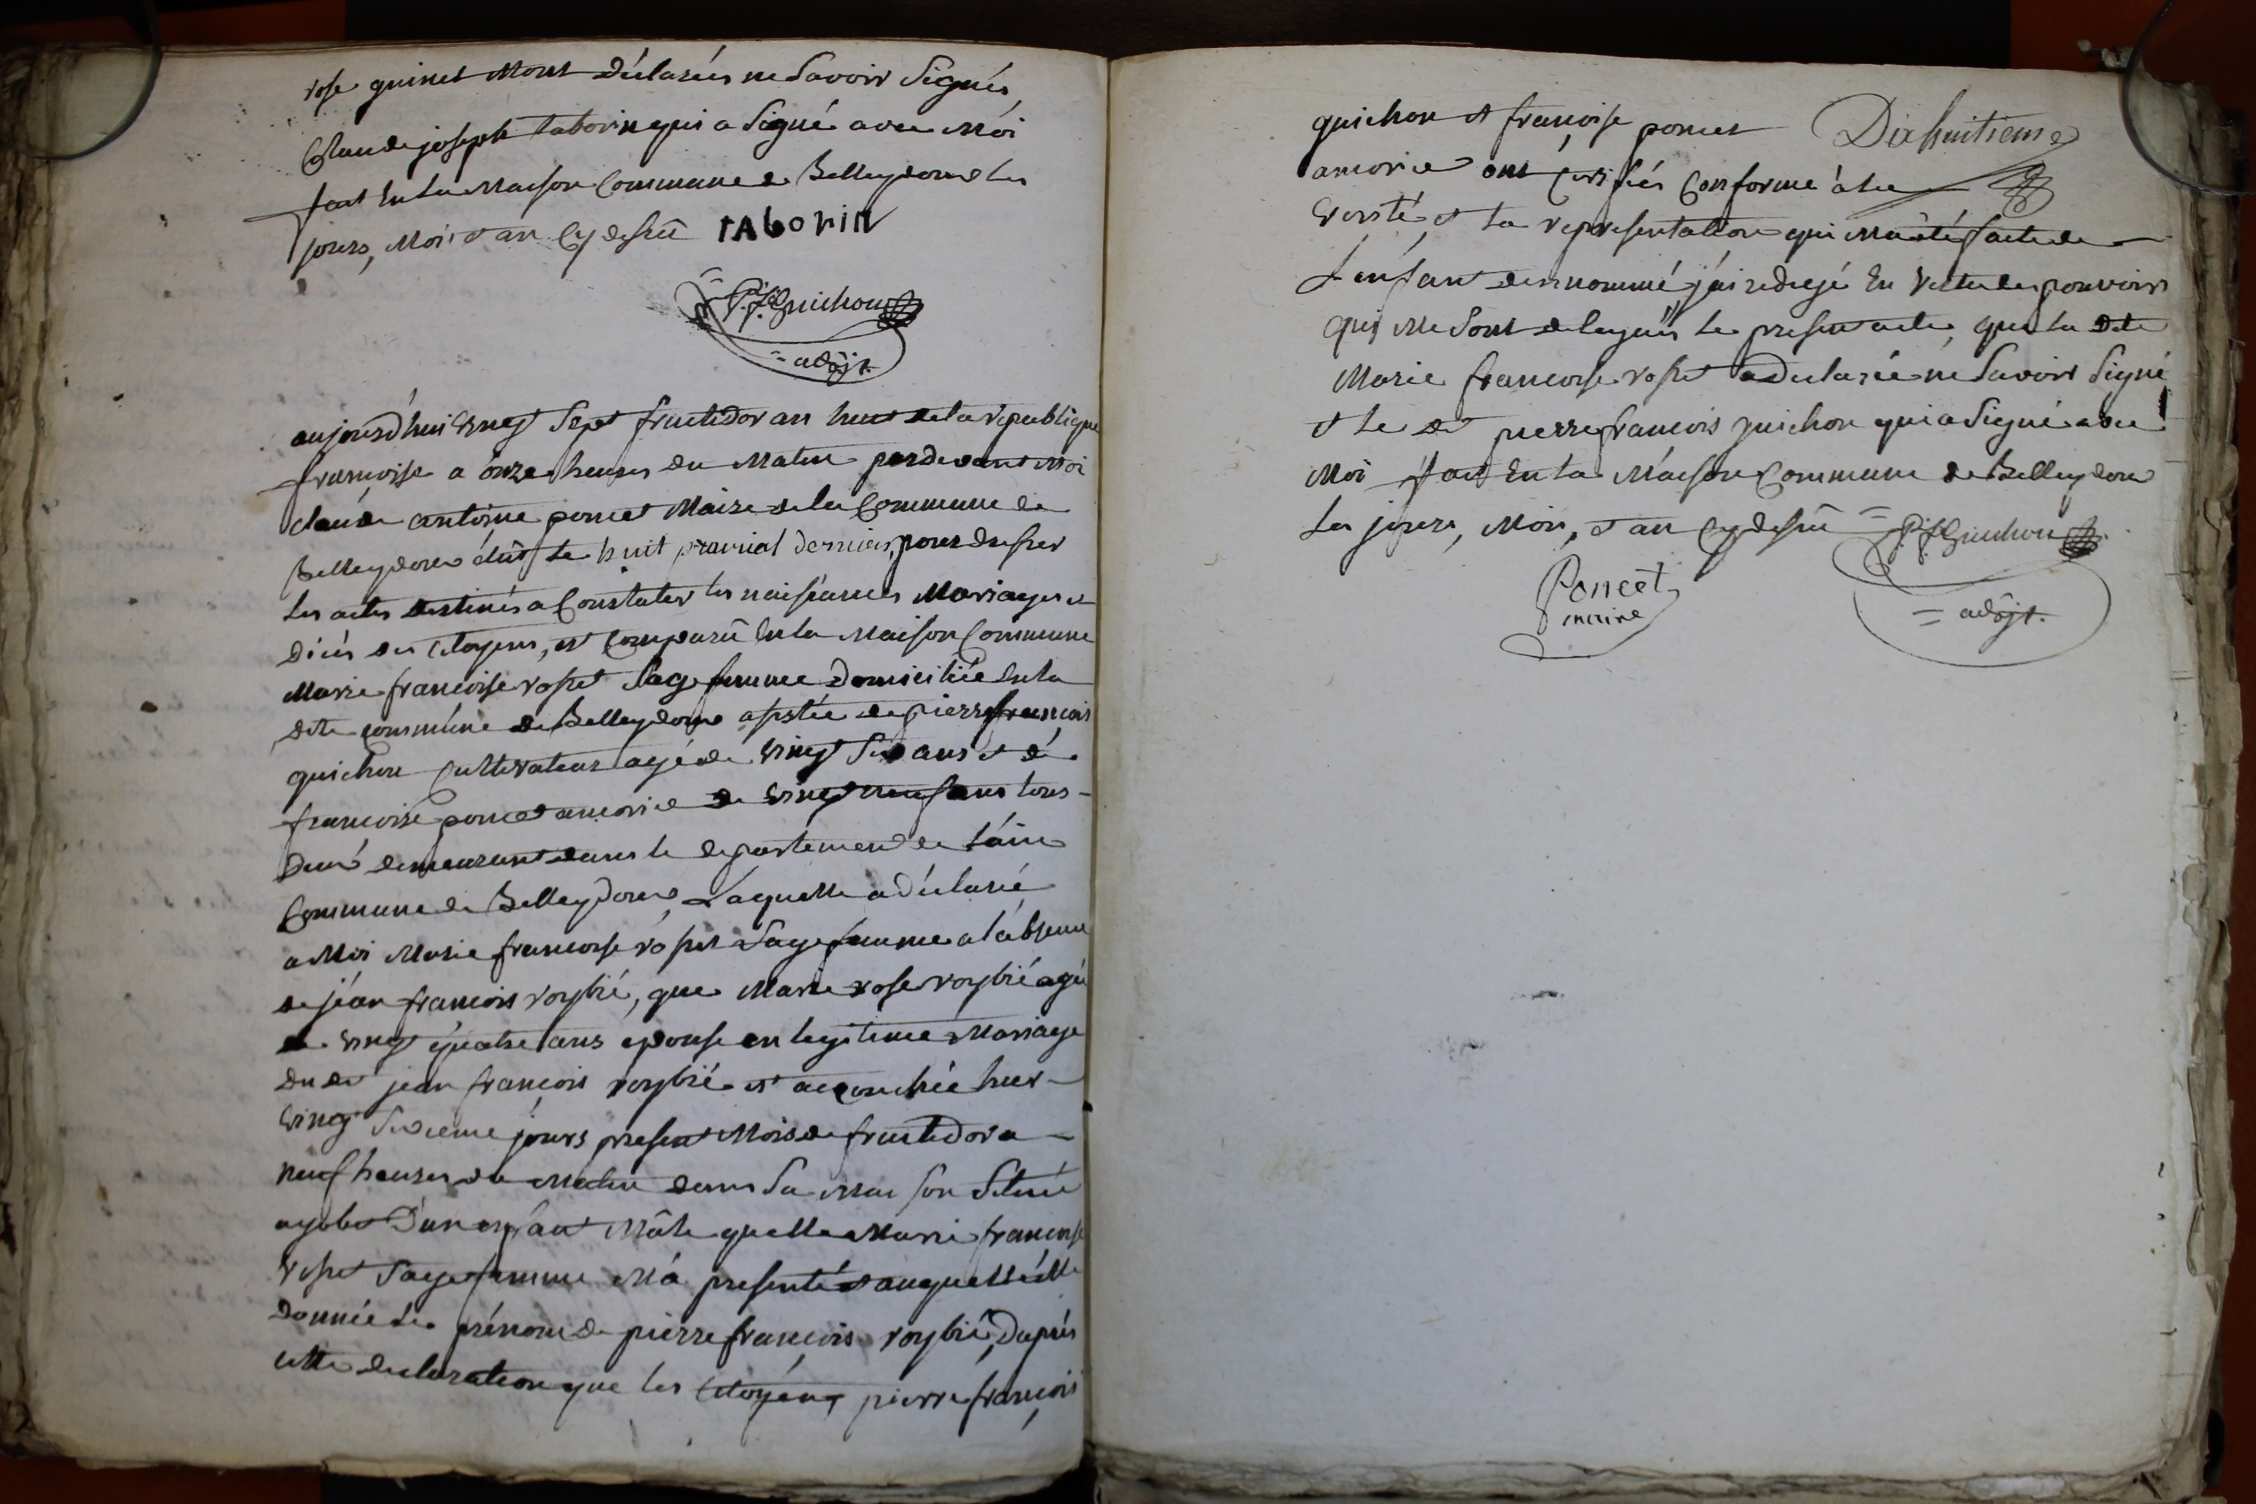 rose guinet mont déclarées ne Savoir Signés,
Claude joseph taborin qui a Signé avec Moi
fait En la Maison Commune de Belleydoux les
jours, Mois et an Cy dessû TABORIN
P. f. Guichon
= adojt.
aujourd'hui vingt Sept fructidor an huit de la republique
françoise a onze heures du Matin pardevant Moi
claude antoine poncet Maire de la Commune de
Belleydoux élût le huit prairial dernier, pour dresser
les actes destinés a Constater les naissances Mariages et
décés des Citoyens, est Comparû En la Maison Commune
Marie françoise rosset Sage femme Domiciliée En la
dite commune de Belleydoux assistée de pierre françois
guichon Cultivateur agé de vingt Six ans et dé
françoise poncet ancorie de vingt neuf ans tous
deux demeurant dans le departement de l'ain
Commune de Belleydoux, Laquelle a Déclaré
a Moi Marie françoise rosset Sage femme a l'absence
de jéan françois roybié, que Marie rose roybié agée
de vingt quatre ans epouse en legitime Mariage
du dt jean françois roybié est accouchée hier
vingt Sixieme jours present Mois de fructidor a
neuf heures du Matin dans Sa Maison Située
a gobet D'un enfant Mâle quelle Marie françoise
rosset Sage femme M'a presenté et auquel elle
Donnée le prénom de pierre françois roybié, D'aprés
cette declaration que les Citoyens pierre françois
Dixhuitieme
guichon et françoise poncet
ancorie ont Certifiés Conforme à la
verité, et la representation qui Ma été faite de
L'enfant denommé, j'ai redigé En Vertu des pouvoirs
qui Me Sont delegués le present acte, que la dite
Marie francoise rosset a Declarée ne Savoir Signé
et le dt pierre francois guichon qui a Signé avec
Moi fait En la Maison Commune de Belleydoux
Les jours, Mois, et an Cy dessû = P. f. Guichon
Poncet
maire
= adojt.